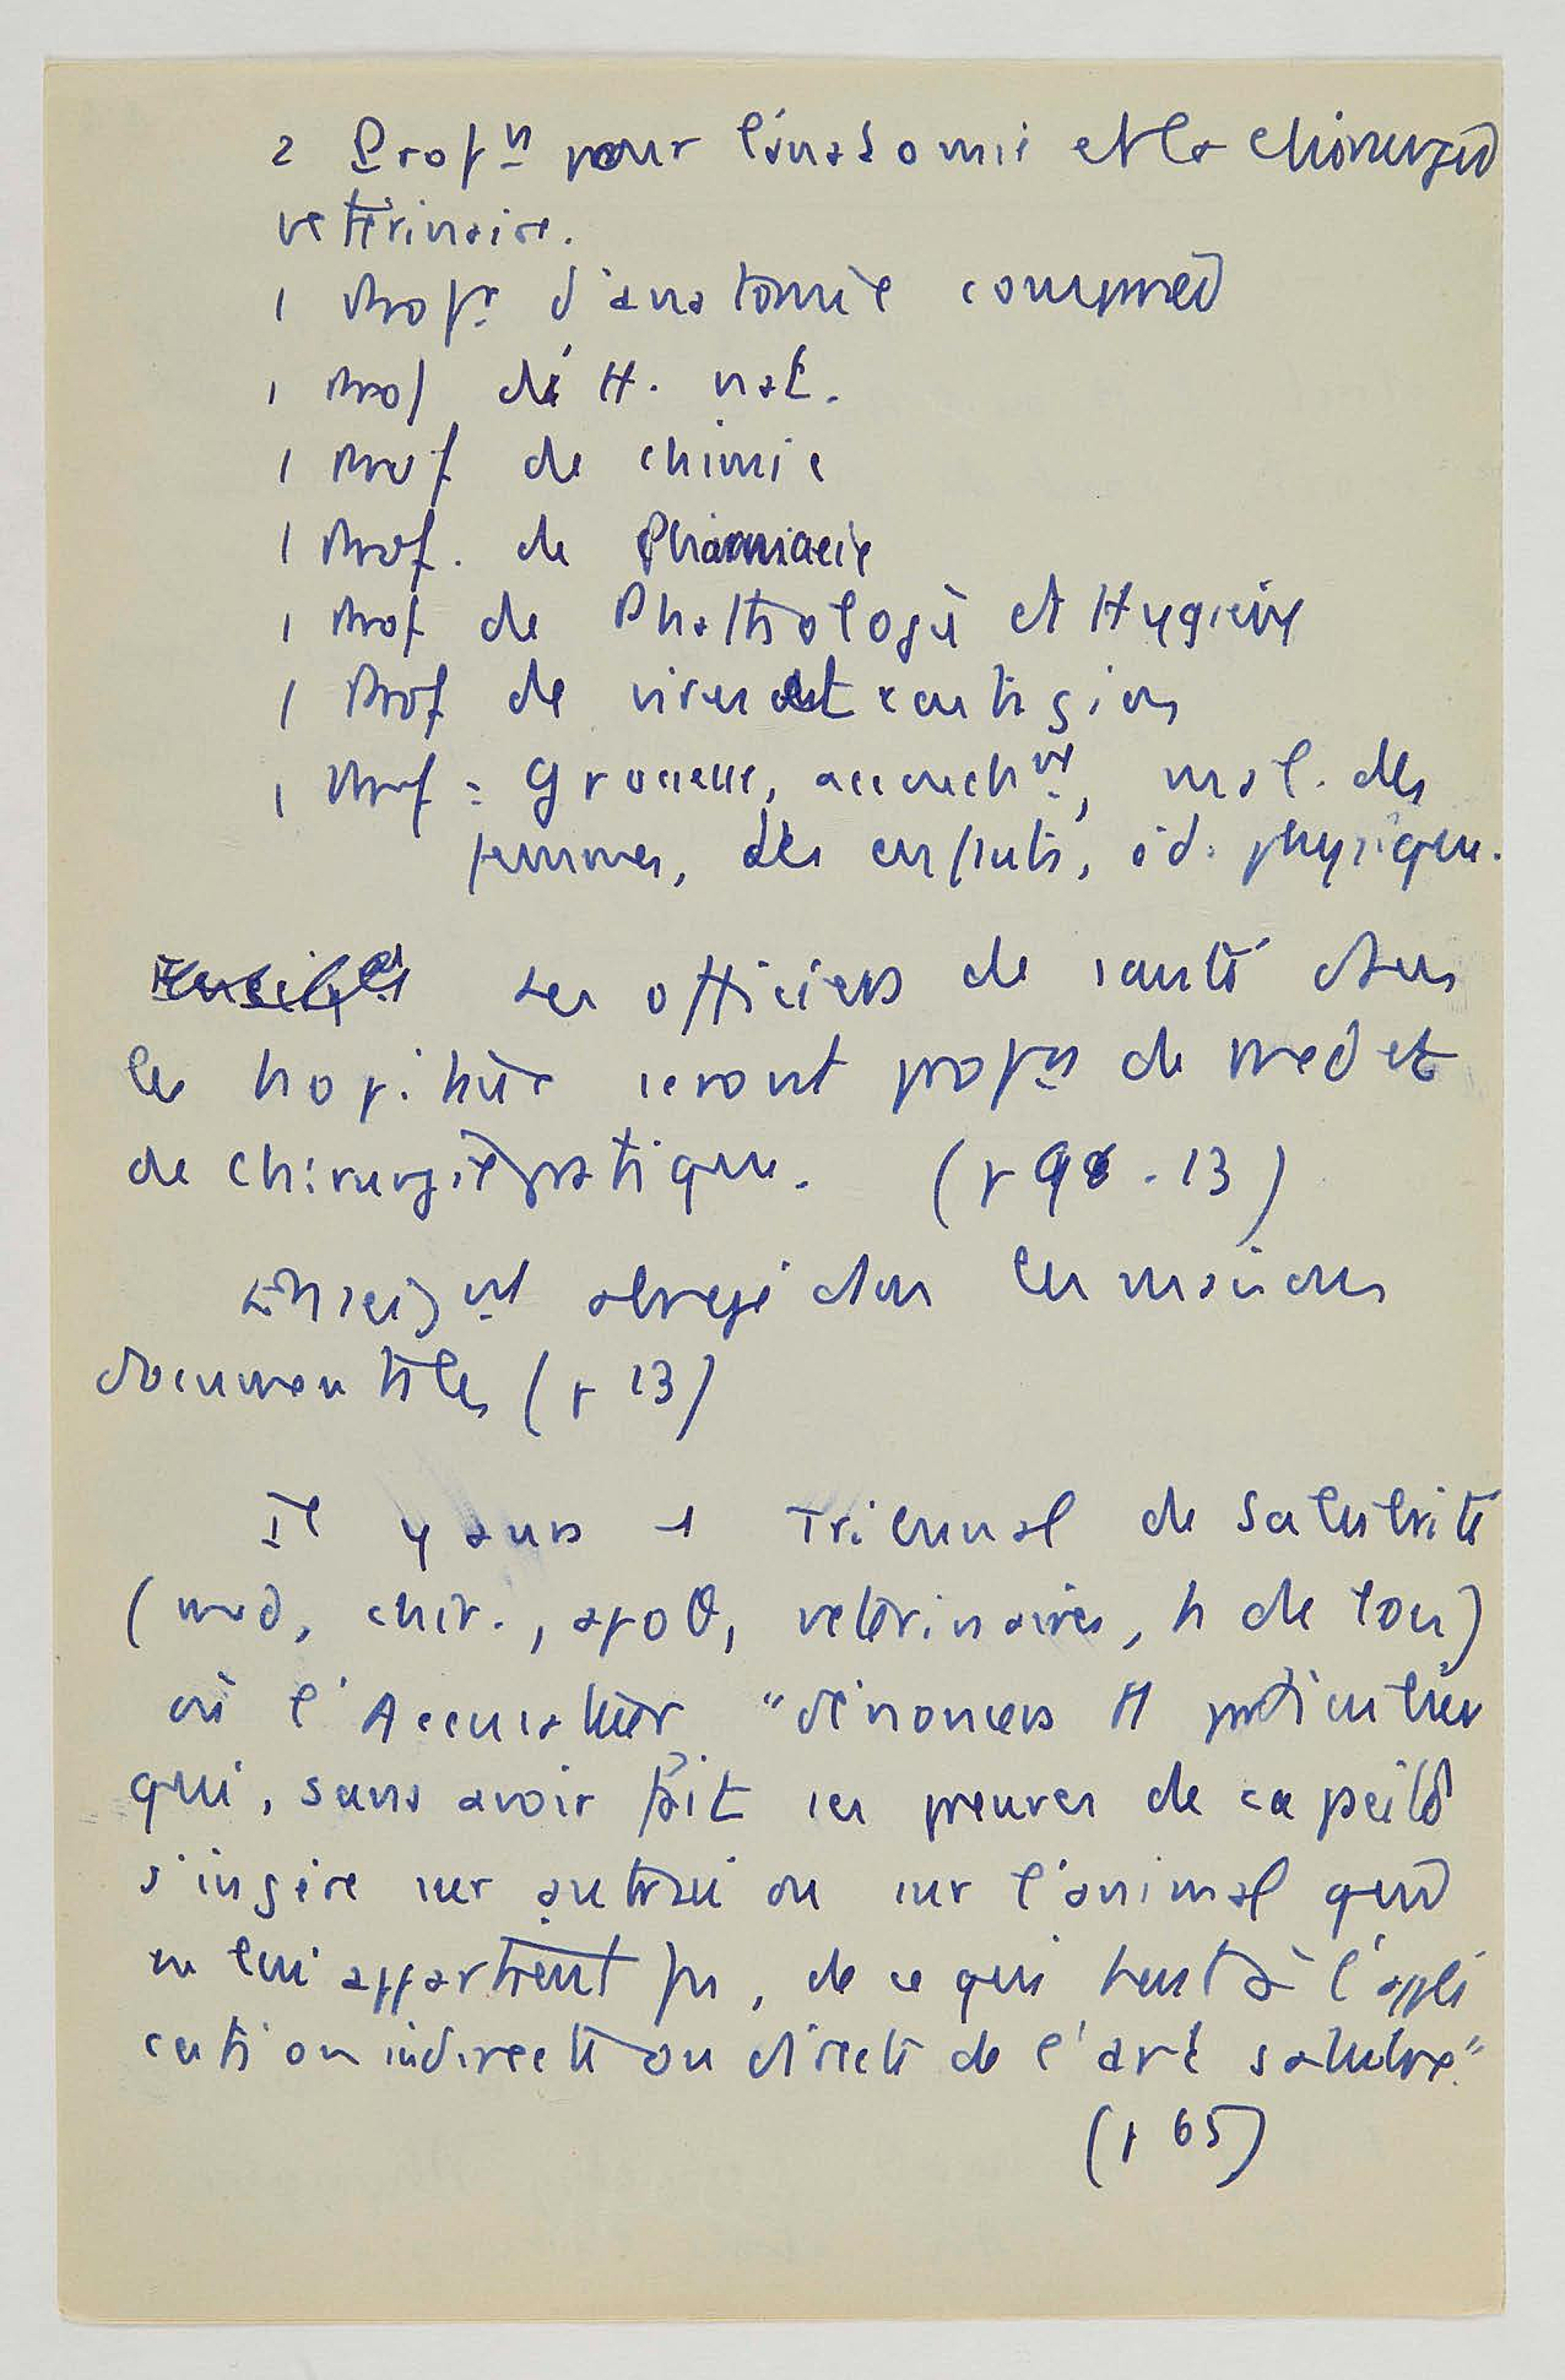 2 Profrs pour l'anatomie et la chirurgie
vétérinaire.
1 Profr d'anatomie comparée
1 Prof d'H. nat.
1 Prof de chimie
1 Prof. de Pharmacie
1 Prof de Phathologie et Hygiène
1 Prof de virus et contagions
1 Prof : Grossesse, accouchnt, mal. des
femmes, des enfants, éd. physique.
Les officiers de santé dans
les hopitaux seront profrs de med et
de chirurgie pratique. (p 98-13)
Enseignt abrégé dans les maisons
(p 13)
Il y aura 1 Tribunal de Salubrité
(med, chir., apoth, vétérinaires, h de loi)
où l'Accusateur "dénoncera tt particulier
qui, sans avoir fait ses preuves de capacité
s'ingère sur autrui ou sur l'animal qui
ne lui appartient pas, de ce qui tient à l'appli
cation indirecte ou directe de l'art salubre."
(p 65)